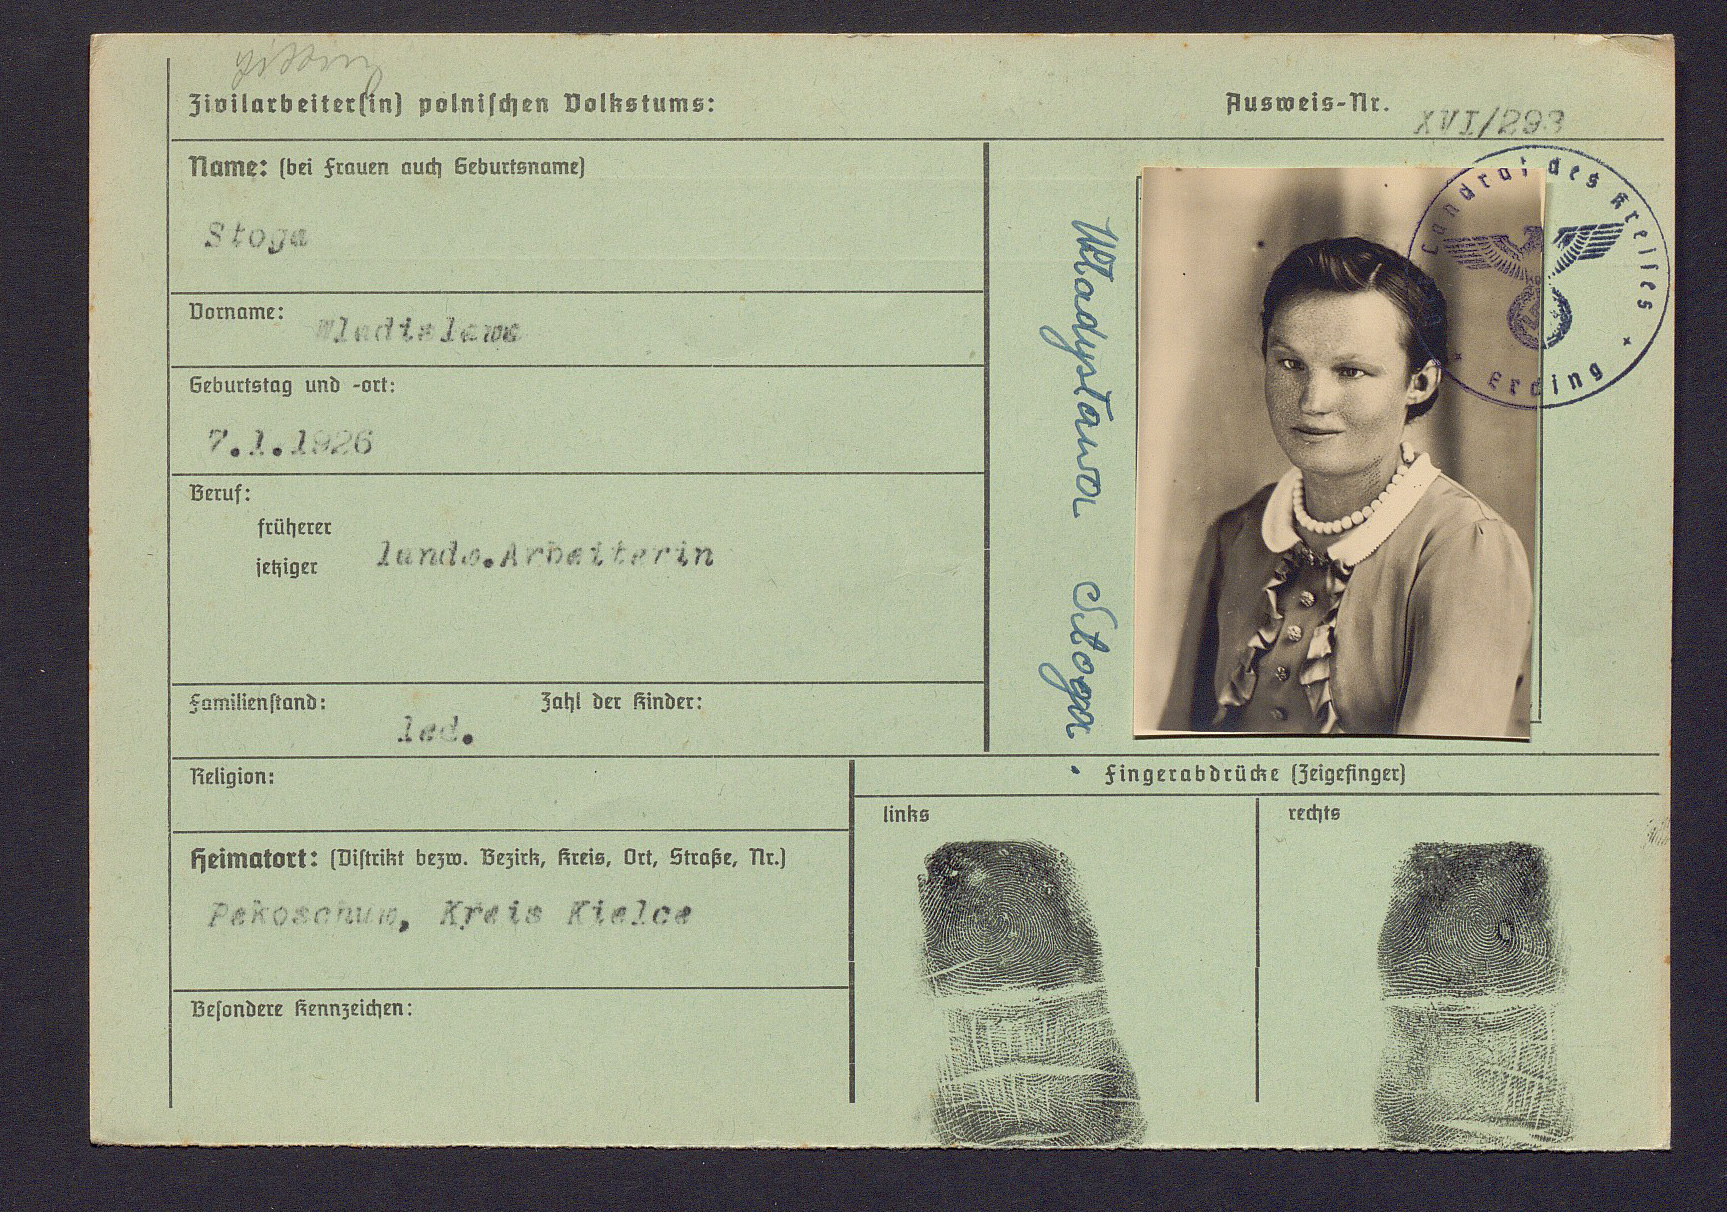 Zivilarbeiter(in) polnischen Volkstums:
Ausweis-Nr. XVI/293
Name: (bei Frauen auch Geburtsname)
Stoga
Vorname: Wladislawa
Geburtstag und -ort:
7.1.1926
Beruf:
früherer
jetziger
landw.Arbeiterin
Familienstand: Zahl der Kinder:
led.
Religion:
Heimatort: (Distrikt bezw. Bezirk, Kreis, Ort, Straße, Nr.)
Pekoschuw, Kreis Kielce
Besondere Kennzeichen:
Władysława Stoga
Landrat des Kreises
Erding
Fingerabdrücke (Zeigefinger)
links
rechts